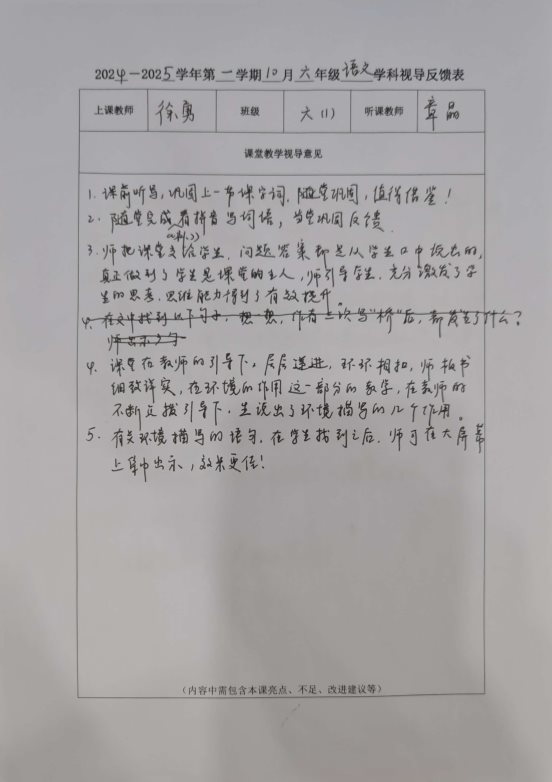 2024—2025学年第一学期10月六年级语文学科视导反馈表
上课教师 徐勇 班级 六(1) 听课教师 章晶
课堂教学视导意见
1. 课前听写，巩固上一节课字词，随堂巩固，值得借鉴！
2. 随堂完成看拼音写词语，当堂巩固反馈
3. 师把课堂交给学生，问题答案都是从学生口中说出的，
真正做到了学生是课堂的主人，师引导学生，充分激发了学
生的思考，思维能力得到了有效提升。
4. 在文中找到以下句子，想一想，作者三次写"桥"后，都发生了什么？
师出示句
4. 课堂在教师的引导下，层层递进，环环相扣，师板书
细致详实，在环境的作用这一部分的教学，在教师的
不断点拨引导下，生说出了环境描写的几个作用。
5. 有关环境描写的语句，在学生找到之后，师可在大屏幕
上集中出示，效果更佳！
（内容中需包含本课亮点、不足、改进建议等）